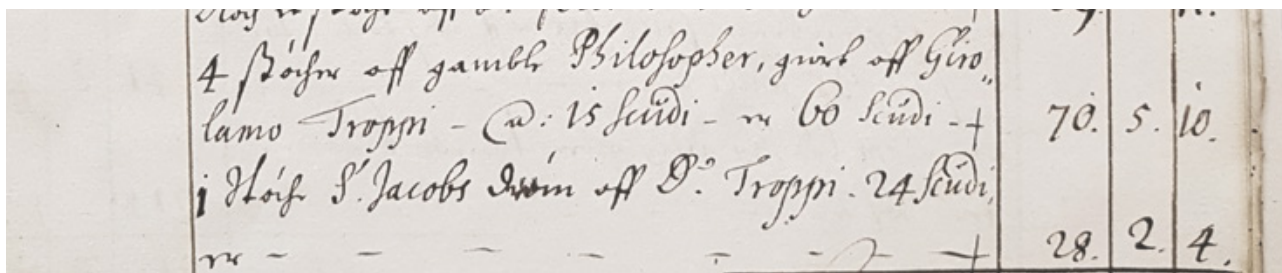 4 støcher aff gamble Philosopher, giort aff Giro„
lamo Troppi - @: 15 scudi - er 60 scudi - 70. 5. 10.
1 støche S. Jacobs drøm aff D.º Troppi. 24 scudi
er - - - - - - - 28. 2. 4.